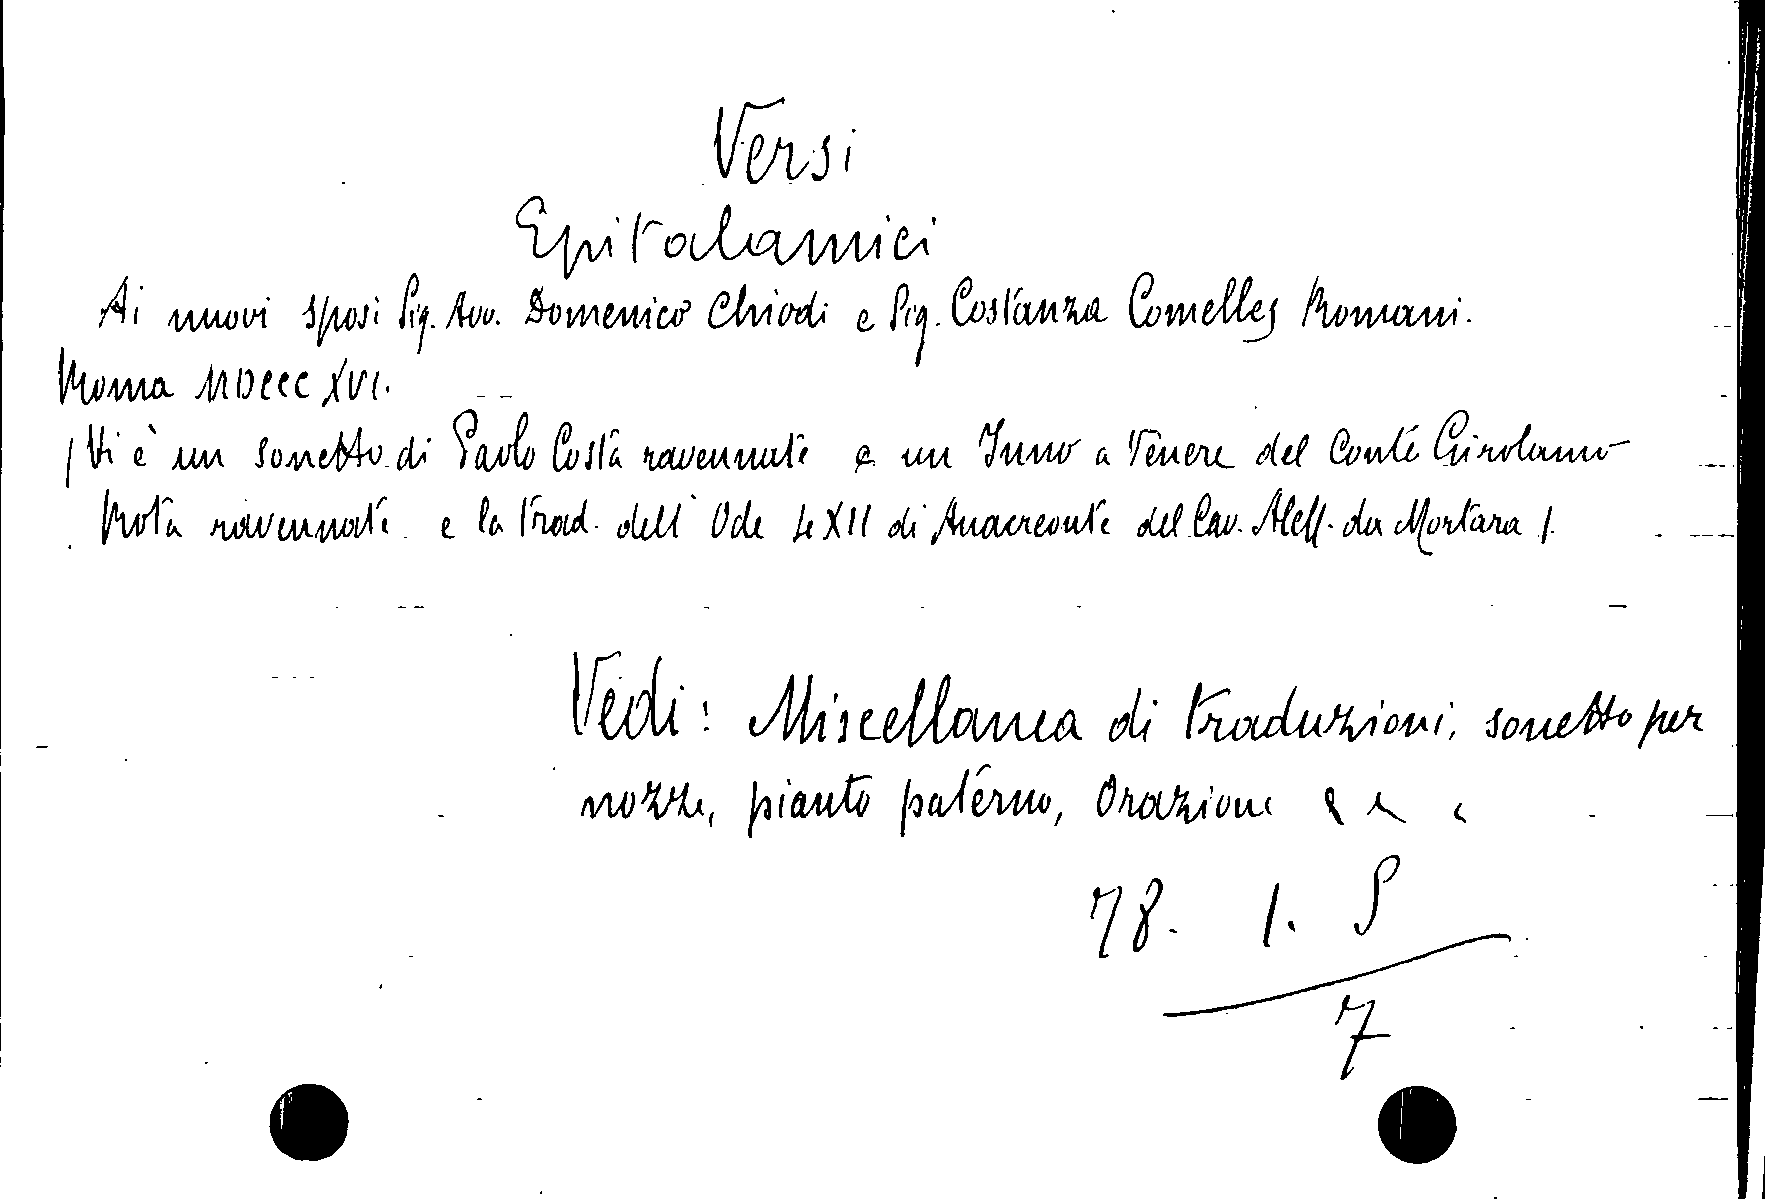 Versi
Epitalamici
Ai nuovi sposi Sig. Avv. Domenico Chiodi e Sig. Costanza Comelles Romani.
Roma MDCCCXVI.
(Vi è un sonetto di Paolo Costa ravennate e un Inno a Venere del Conte Girolamo
Rota ravennate e la trad. dell'Ode LXII di Anacreonte del Cav. Aless. da Mortara).
Vedi: Miscellanea di traduzioni, sonetto per
nozze, pianto paterno, Orazione
78. 1. S
7